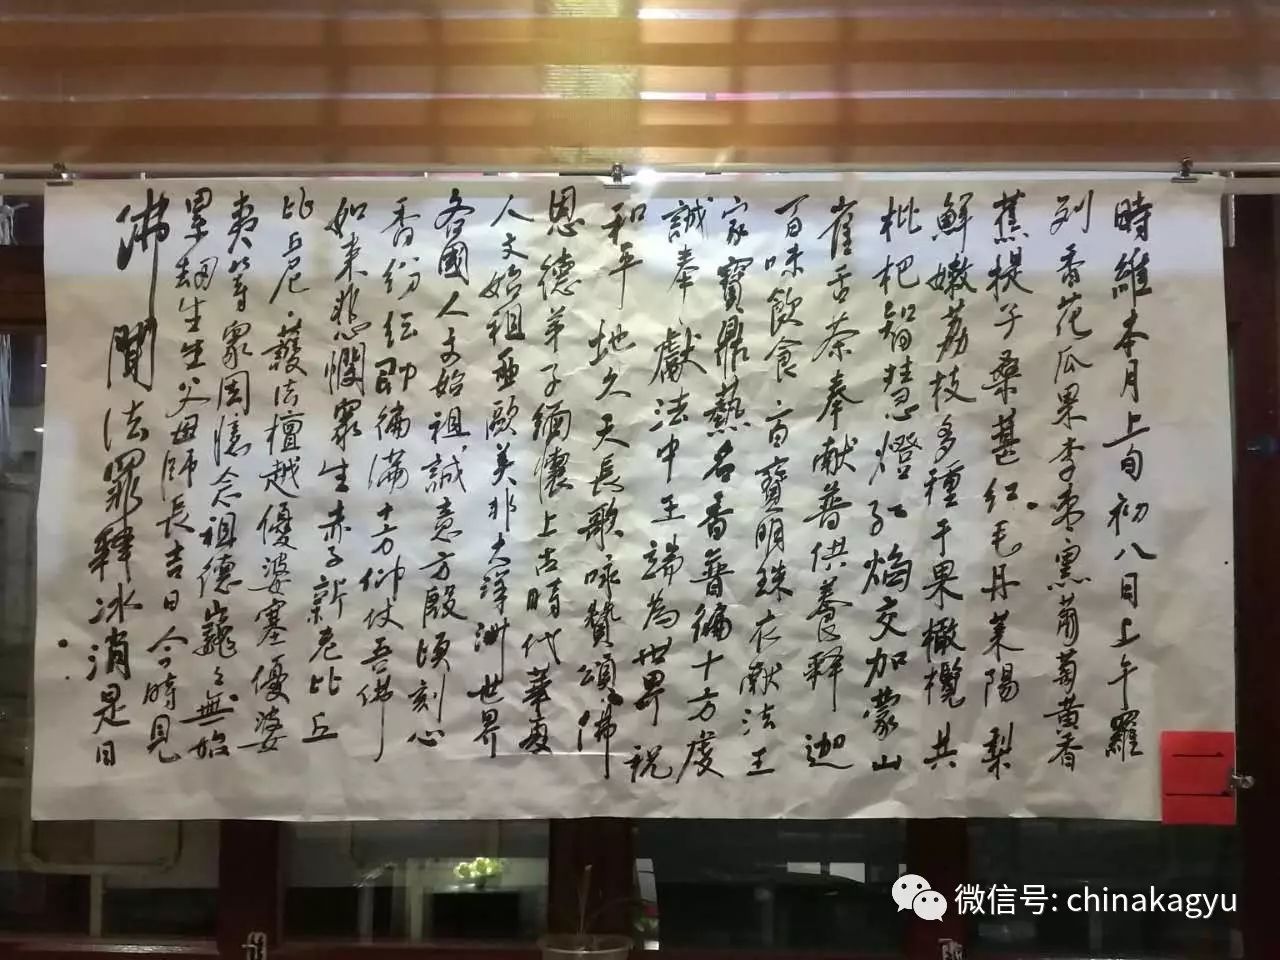 時維本月上旬初八日上午羅
列香花瓜果李棗熏葡萄黃香
蕉提子桑葚紅毛丹萊陽梨
鮮嫩荔枝多種干果橄欖共
枇杷智慧燈紅焰交加蒙山
雀舌茶奉献普供養釋迦
百味飲食百寶明珠衣献法王
家寶鼎爇名香普徧十方虔
誠奉獻法中王端為世界祝
和平地久天長歌咏贊頌佛
恩德弟子緬懷上古時代華夏
人文始祖亜歐美非大洋洲世界
各國人文始祖誠意方殷頃刻心
香紛紜即徧滿十方仰仗吾佛
如来悲憫衆生赤子新老比丘
比丘尼護法檀越優婆塞優婆
夷等衆同憶念祖德巍々無始
累劫生生父母師長吉日今時見
佛聞法罪釋冰消是日
二
微信号: chinakagyu